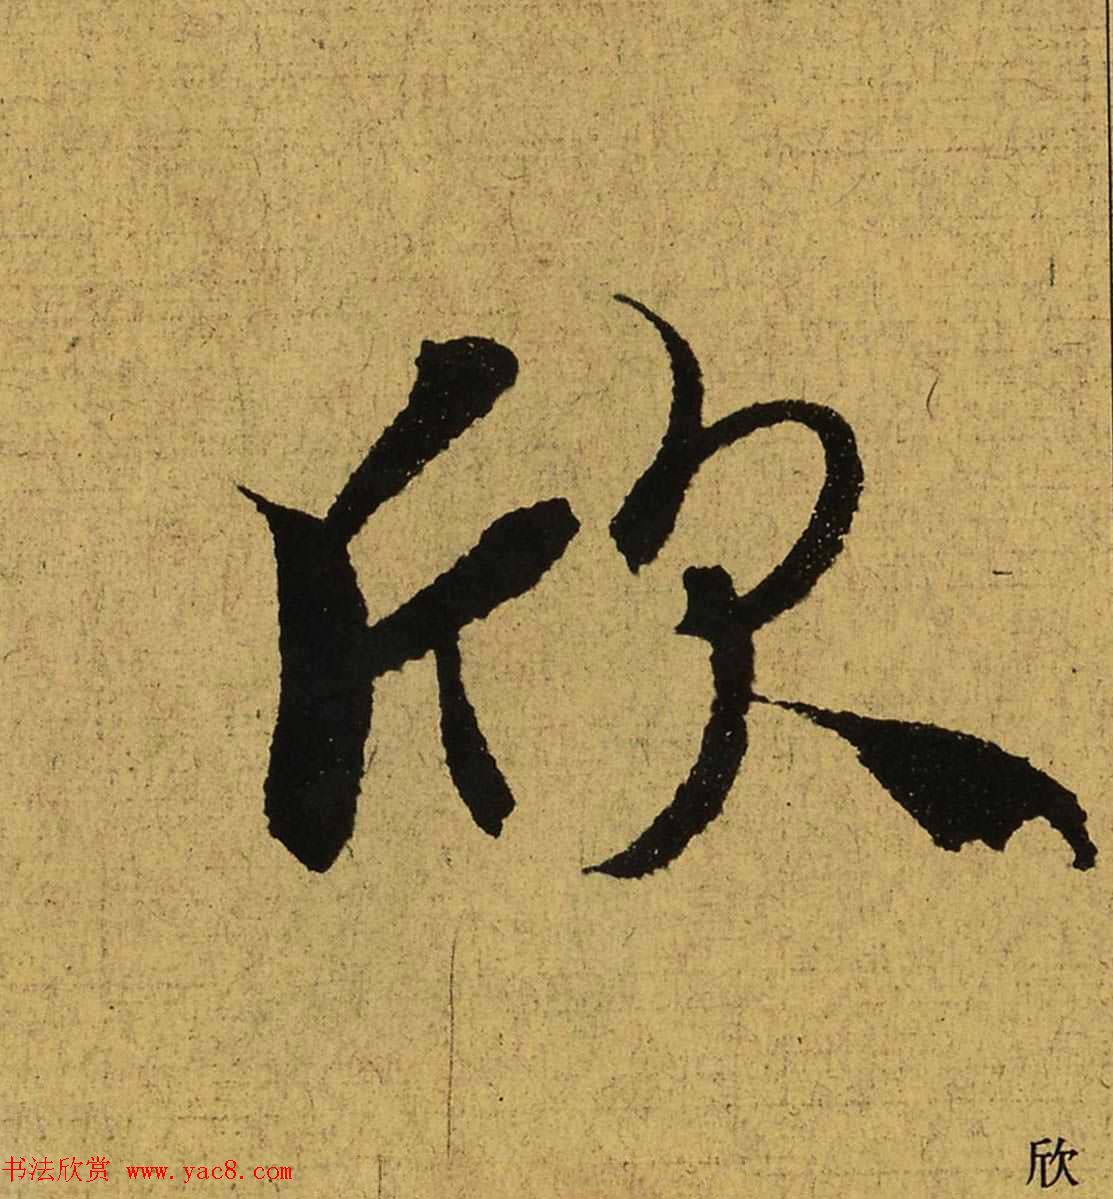 欣
书法欣赏 www.yac8.com
欣